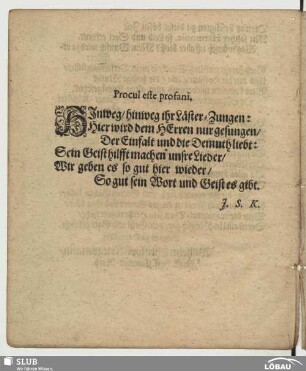 Procul este profani.
HInweg / hinweg ihr Läster-Zungen:
Hier wird dem HErren nur gesungen /
Der Einfalt und die Demuth liebt:
Sein Geist hilfft machen unsre Lieder /
Wir geben es so gut hier wieder /
So gut sein Wort und Geist es gibt.
J. S. K.
SLUB
Wir führen Wissen.
LÖBAU